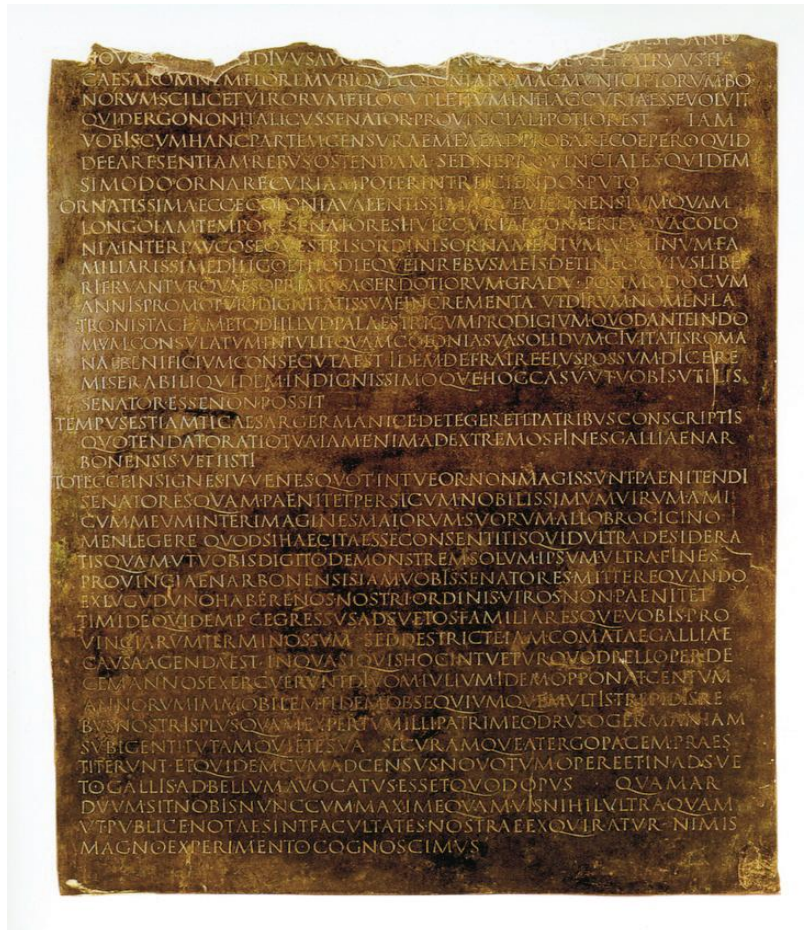 EST SANE
NOVO DIVVSAVG EVSETPATRVVSTI
CAESAROMNEMFLOREMVBIQVECOLONIARVMACMVNICIPIORVMBO
NORVMSCILICETVIRORVMETLOCVPLETIVMINHACCVRIAESSEVOLVIT
QVIDERGONONITALICVSSENATORPROVINCIALIPOTIOREST IAM
VOBISCVMHANCPARTEMCENSVRAEMEAEADPROBARECOEPEROQVID
DEEARESENTIAMREBVSOSTENDAM SEDNEPROVINCIALESQVIDEM
SIMODOORNARECVRIAMPOTERINTREICIENDOSPVTO
ORNATISSIMAECCECOLONIAVALENTISSIMAQVEVIENNENSIVMQVAM
LONGOIAMTEMPORESENATORESHVICCVRIAECONFERTEXQVACOLO
NIAINTERPAVCOSEQVESTRISORDINISORNAMENTVMLVESTINVMFA
MILIARISSIMEDILIGOETHODIEQVEINREBVSMEISDETINEOCVIVSLIBE
RIFRVANTVRQVAESOPRIMOSACERDOTIORVMGRADVPOSTMODOCVM
ANNISPROMOTVRIDIGNITATISSVAEINCREMENTA VTDIRVMNOMENLA
TRONISTACEAMETODIILLVDPALAESTRICVMPRODIGIVMQVODANTEINDO
MVMCONSVLATVMINTVLITQVAMCOLONIASVASOLIDVMCIVITATISROMA
NAEBENIFICIVMCONSECVTAEST IDEMDEFRATREEIVSPOSSVMDICERE
MISERABILIQVIDEMINDIGNISSIMOQVEHOCCASVVTVOBISVTILIS
SENATORESSENONPOSSIT
TEMPVSESTIAMTICAESARGERMANICEDETEGERETEPATRIBVSCONSCRIPTIS
QVOTENDATORATIOTVAIAMENIMADEXTREMOSFINESGALLIAENAR
BONENSISVENISTI
TOTECCEINSIGNESIVVENESQVOTINTVEORNONMAGISSVNTPAENITENDI
SENATORESQVAMPAENITETPERSICVMNOBILISSIMVMVIRVMAMI
CVMMEVMINTERIMAGINESMAIORVMSVORVMALLOBROGICINO
MENLEGERE QVODSIHAECITAESSECONSENTITISQVIDVLTRADESIDERA
TISQVAMVTVOBISDIGITODEMONSTREMSOLVMIPSVMVLTRAFINES
PROVINCIAENARBONENSISIAMVOBISSENATORESMITTEREQVANDO
EXLVGVDVNOHABERENOSNOSTRIORDINISVIROSNONPAENITET
TIMIDEQVIDEMPCEGRESSVSADSVETOSFAMILIARESQVEVOBISPRO
VINCIARVMTERMINOSSVM SEDDESTRICTEIAMCOMATAEGALLIAE
CAVSAAGENDAEST INQVASIQVISHOCINTVETVRQVODBELLOPERDE
CEMANNOSEXERCVERVNTDIVOMIVLIVMIDEMOPPONATCENTVM
ANNORVMIMMOBILEMFIDEMOBSEQVIVMQVEMVLTISTREPIDISRE
BVSNOSTRISPLVSQVAMEXPERTVMILLIPATRIMEODRVSOGERMANIAM
SVBIGENTITVTAMQVIETESVA SECVRAMQVEATERGOPACEMPRAES
TITERVNT ETQVIDEMCVMADCENSVSNOVOTVMOPEREETINADSVE
TOGALLISADBELLVMAVOCATVSESSETQVODOPVS QVAMAR
DVVMSITNOBISNVNCCVMMAXIMEQVAMVISNIHILVLTRAQVAM
VTPVBLICENOTAESINTFACVLTATESNOSTRAEEXQVIRATVR NIMIS
MAGNOEXPERIMENTOCOGNOSCIMVS